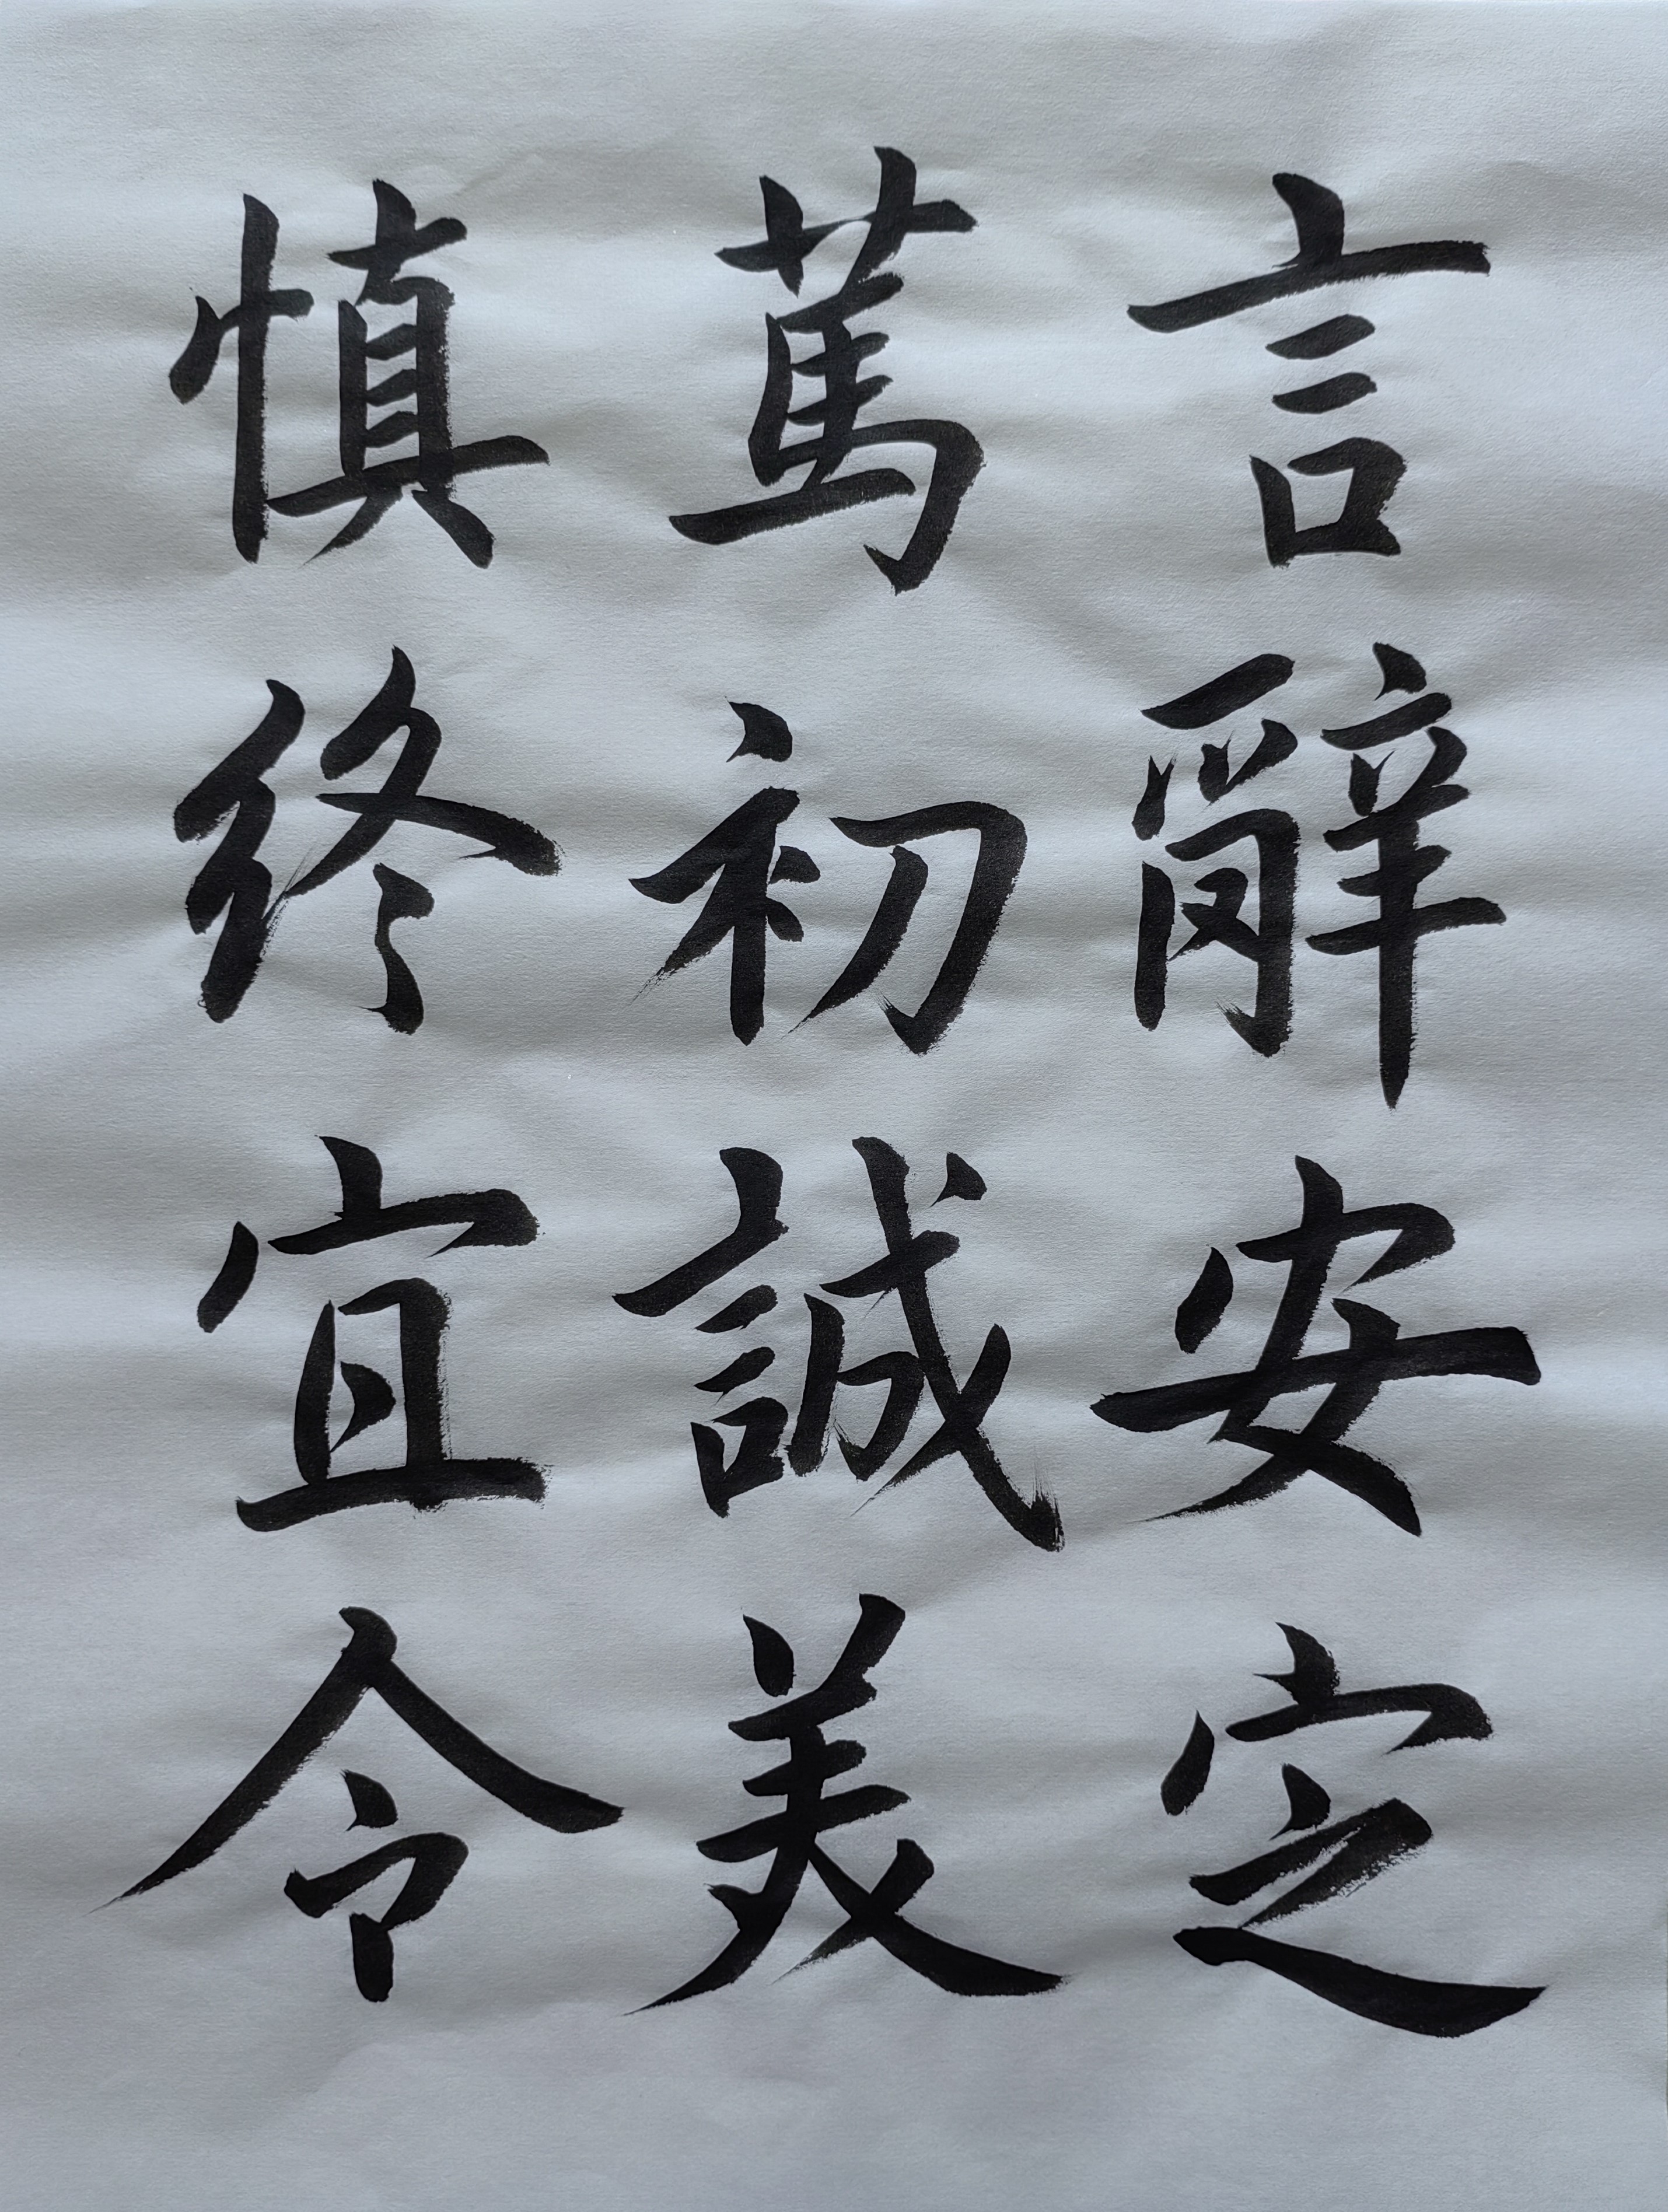 言辭安定
篤初誠美
慎終宜令